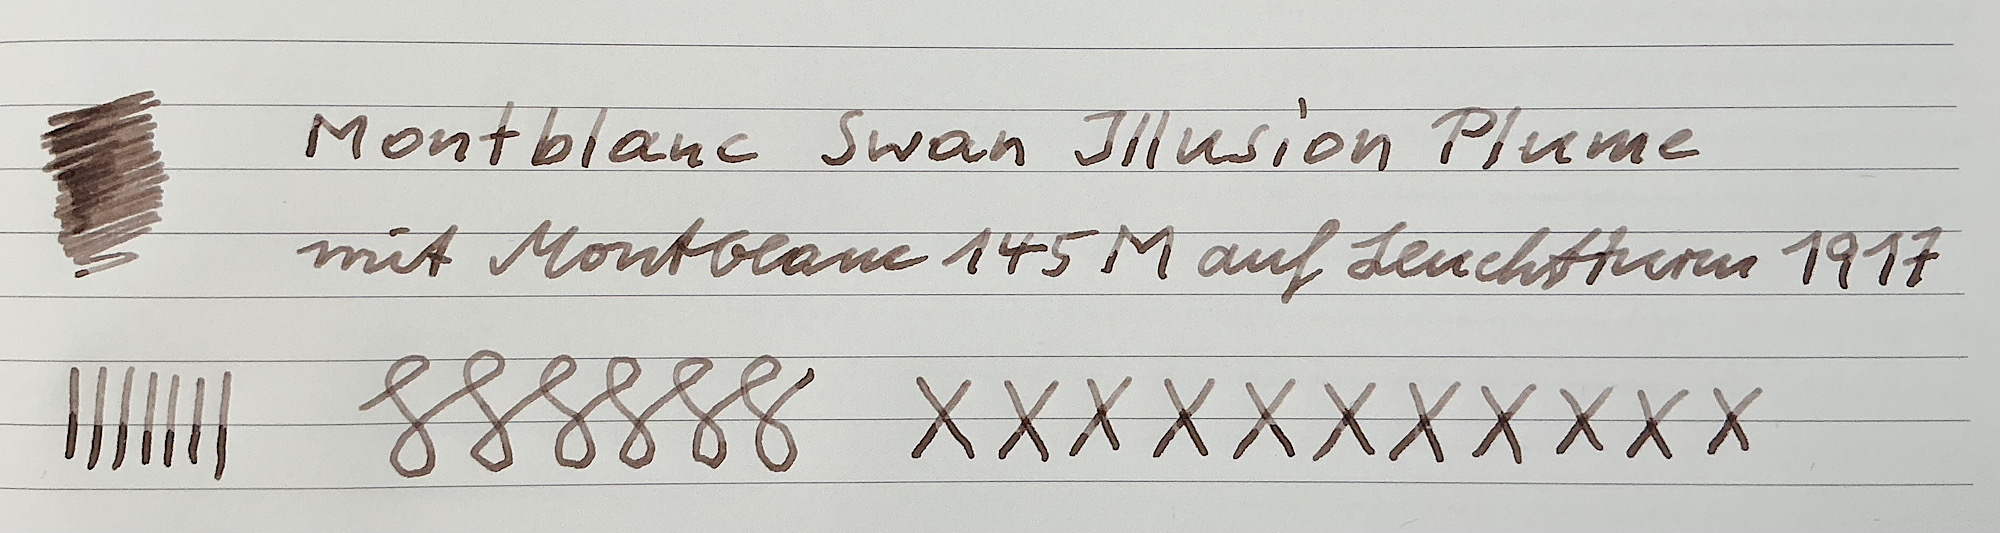 Montblanc Swan Illusion Plume
mit Montblanc 145 M auf Leuchtturm 1917
xxxxxxxxxxx